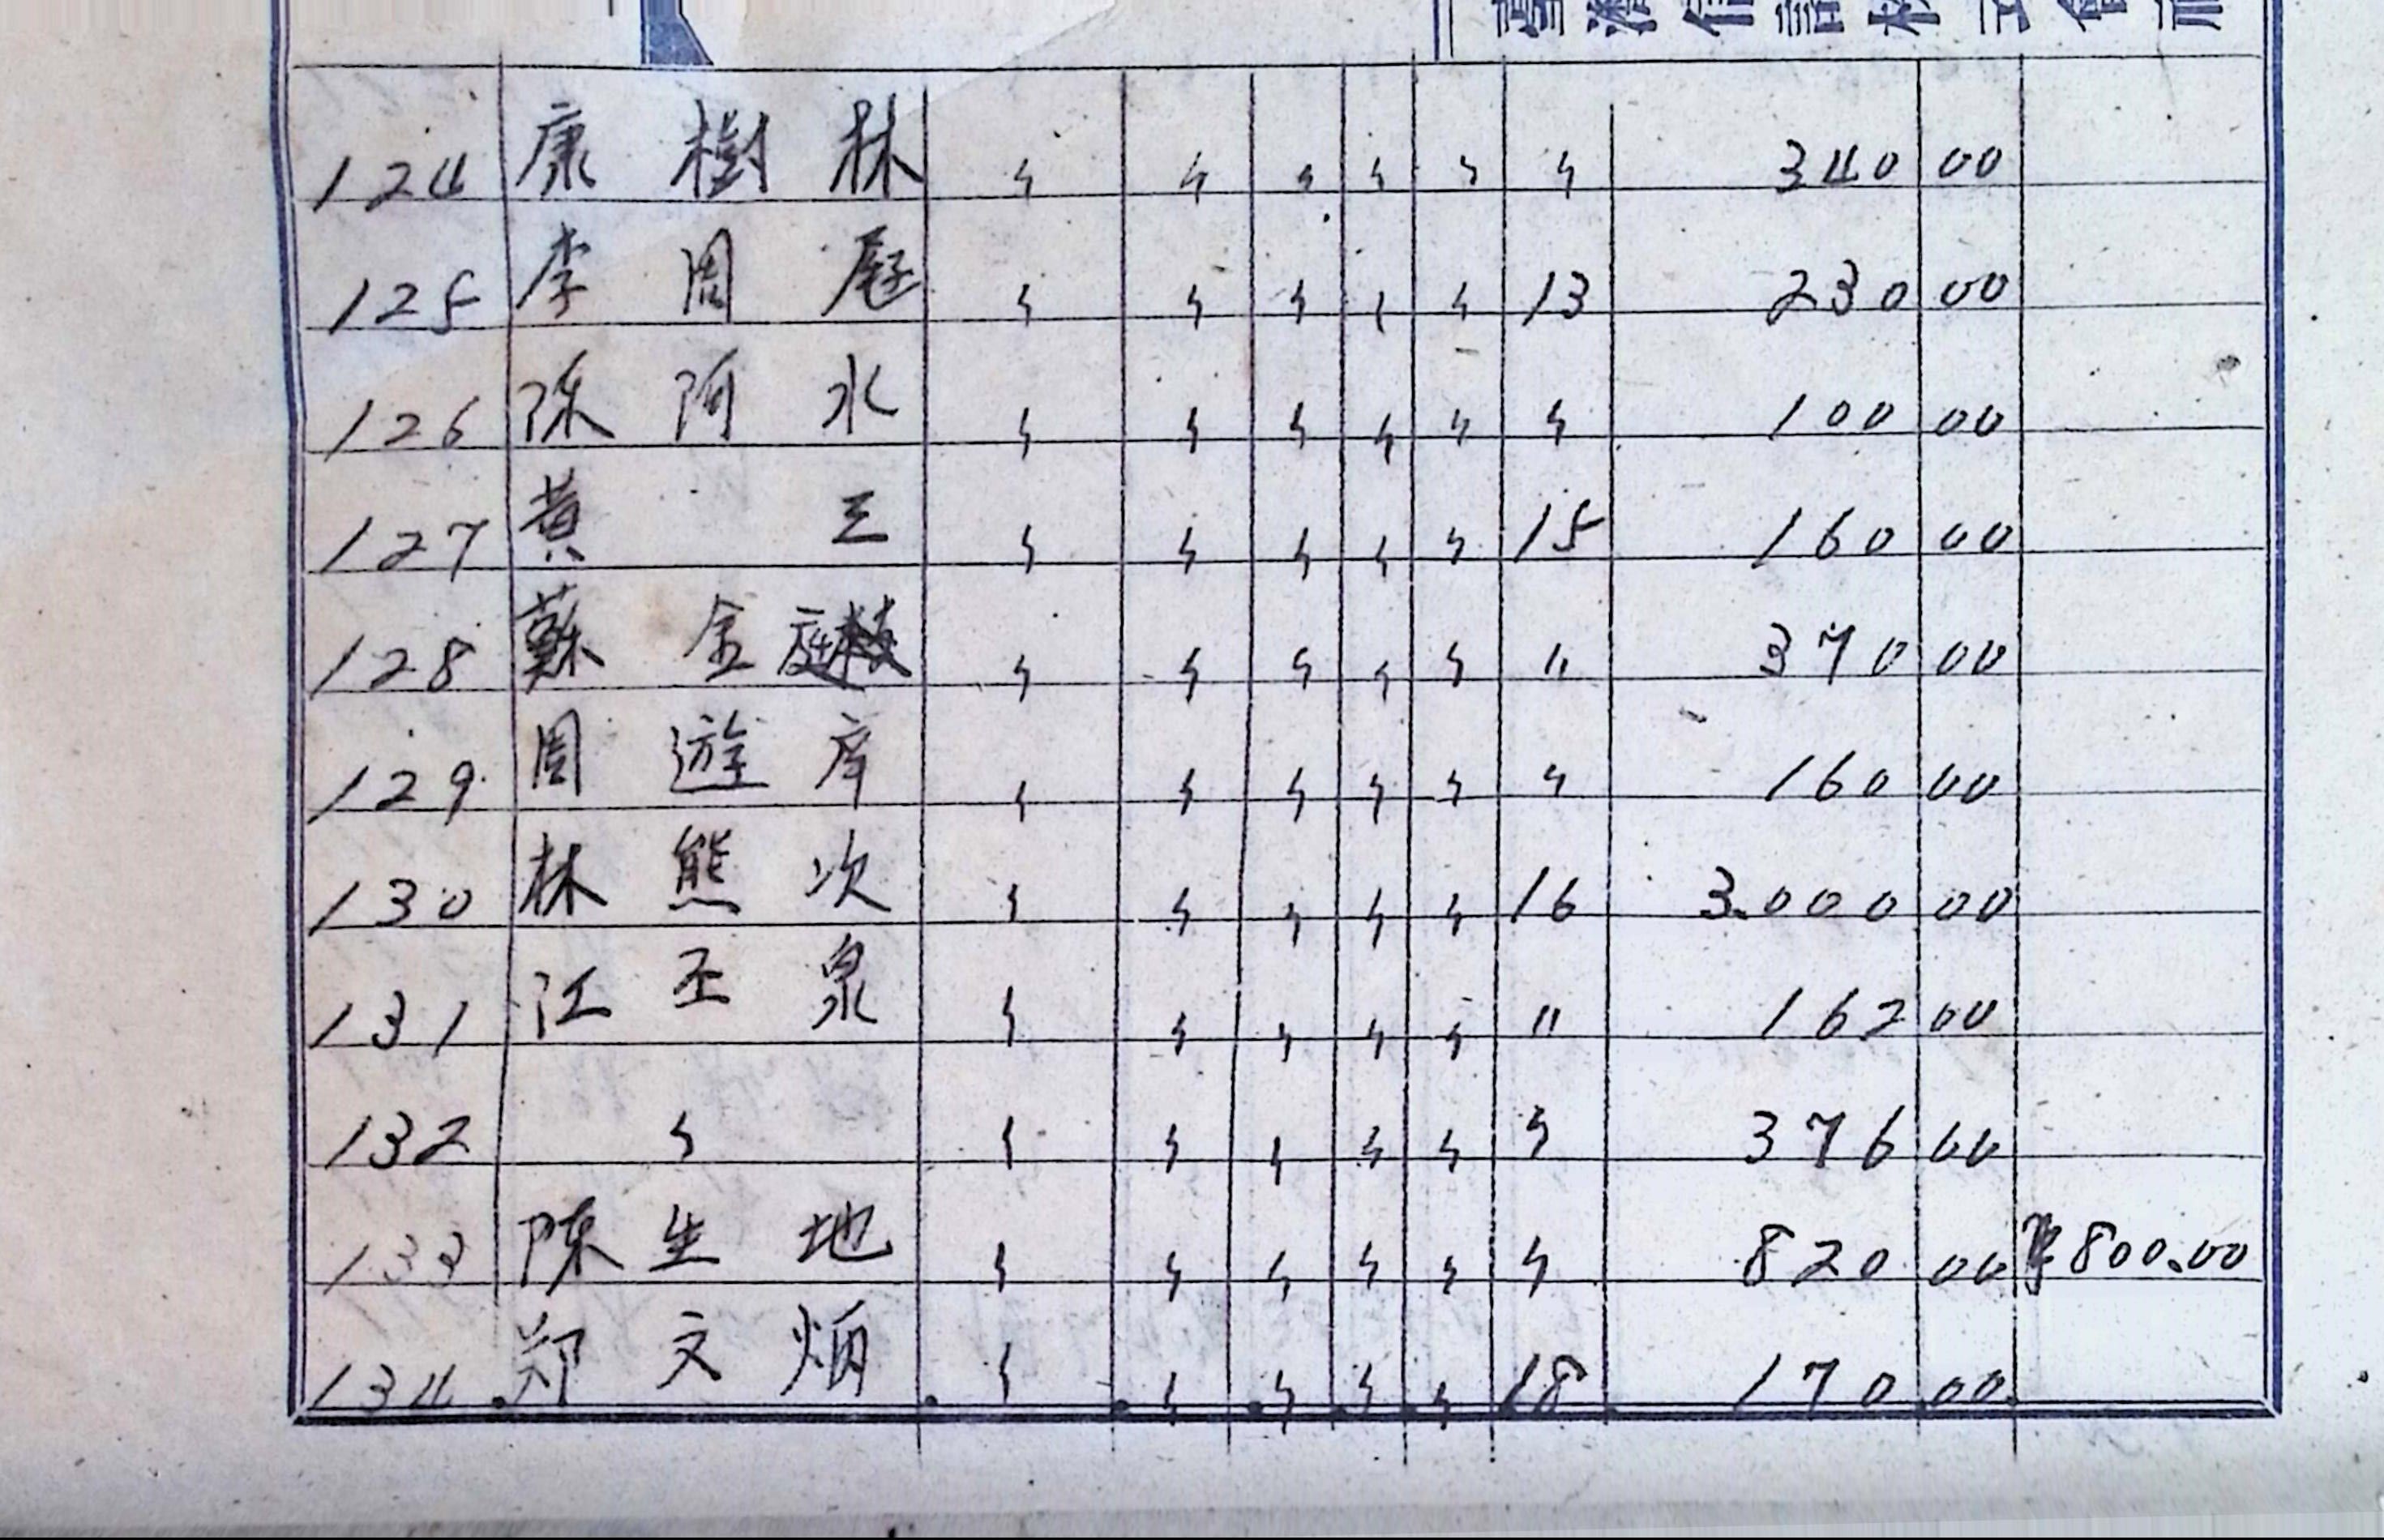 臺灣信託株式會社
124 康樹林 〃 〃 〃 〃 〃 〃 340 00
125 李周庭 〃 〃 〃 〃 〃 13 230 00
126 陳阿水 〃 〃 〃 〃 〃 〃 100 00
127 黃 三 〃 〃 〃 〃 〃 15 160 00
128 蘇金庭 〃 〃 〃 〃 〃 〃 370 00
129 周遊 〃 〃 〃 〃 〃 〃 160 00
130 林熊次 〃 〃 〃 〃 〃 16 3.000 00
131 江丕泉 〃 〃 〃 〃 〃 〃 162 00
132 〃 〃 〃 〃 〃 〃 〃 376 00
133 陳生地 〃 〃 〃 〃 〃 〃 820 00 ¥800.00
134 郑文炳 〃 〃 〃 〃 〃 18 170 00